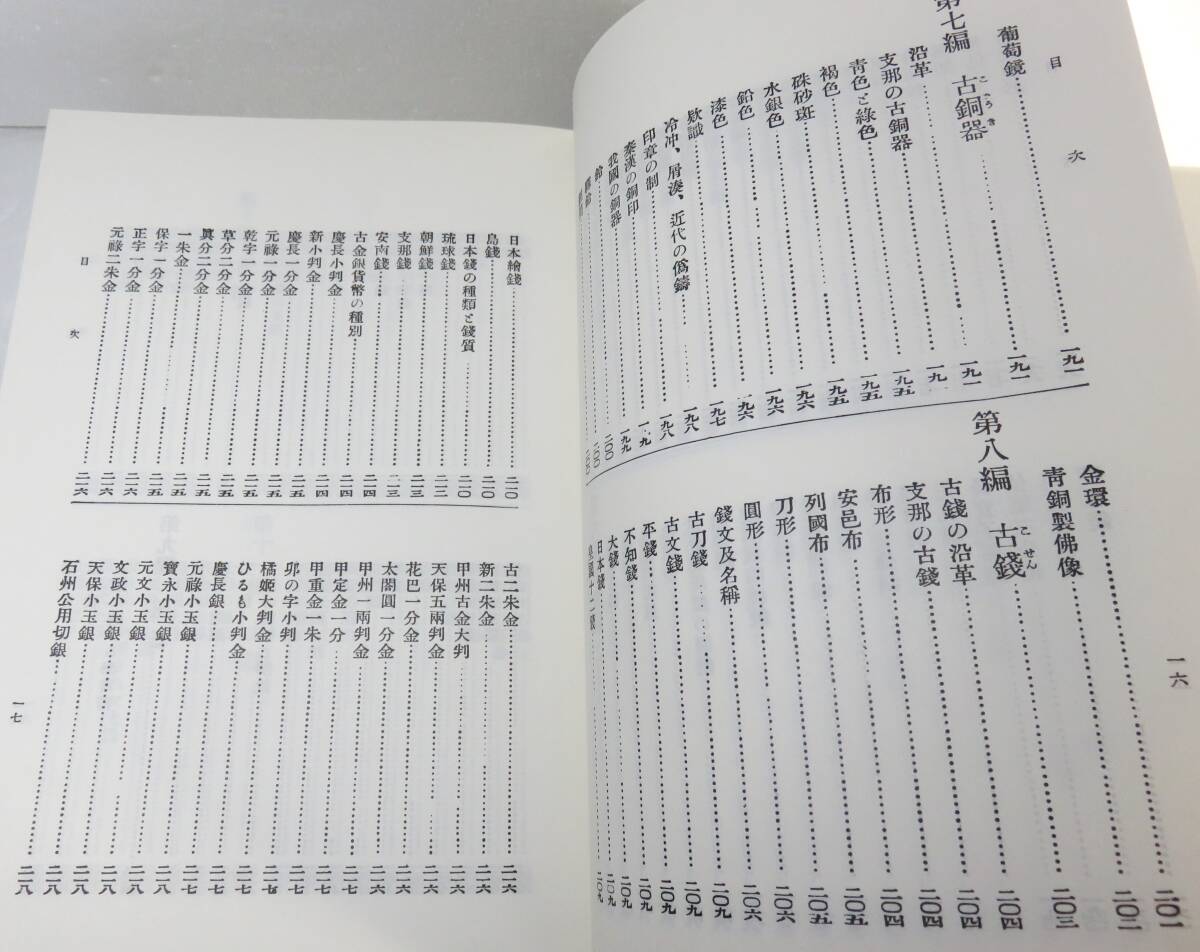 目次
葡萄鏡……一九一
第七編 古銅器……一九一
こ どうき
沿革……一九一
支那の古銅器……一九
青色と綠色……一九五
褐色……一九五
硃砂斑……一九五
水銀色……一九六
鉛色……一九六
漆色……一九六
欵識……一九七
冷冲、屑湊、近代の僞鑄……一九八
印章の制……一九八
秦漢の銅印……一九
我國の銅器……一九九
鈴……二〇〇
金環……二〇一
青銅製佛像……二〇二
第八編 古錢……二〇三
こ せん
古錢の沿革……二〇四
支那の古錢……二〇四
布形……二〇四
安邑布……二〇四
列國布……二〇五
刀形……二〇五
圓形……二〇六
錢文及名稱……二〇六
古刀錢……二〇九
古文錢……二〇九
平錢……二〇九
不知錢……二〇九
大錢……二〇九
日本錢……二〇九
一六
日本繪錢……二一〇
島錢……二一〇
日本錢の種類と錢質……二一〇
琉球錢……二一三
朝鮮錢……二一三
支那錢……二一三
安南錢……二一四
古金銀貨幣の種別……二一四
慶長小判金……二一四
新小判金……二一五
慶長一分金……二一五
元祿一分金……二一五
乾字一分金……二一五
草分二分金……二一五
眞分二分金……二一五
一朱金……二一五
保字一分金……二一六
正字一分金……二一六
元祿二朱金……二一六
目次
古二朱金……二一六
新二朱金……二一六
甲州古金大判……二一六
天保五兩判金……二一六
花巴一分金……二一六
太閤圓一分金……二一六
甲州一兩判金……二一七
甲定金一分……二一七
甲重金一朱……二一七
卯の字小判……二一七
橘姬大判金……二一七
ひるも小判金……二一七
慶長銀……二一七
元祿小玉銀……二一八
寶永小玉銀……二一八
元文小玉銀……二一八
文政小玉銀……二一八
天保小玉銀……二一八
石州公用切銀……二一八
一七